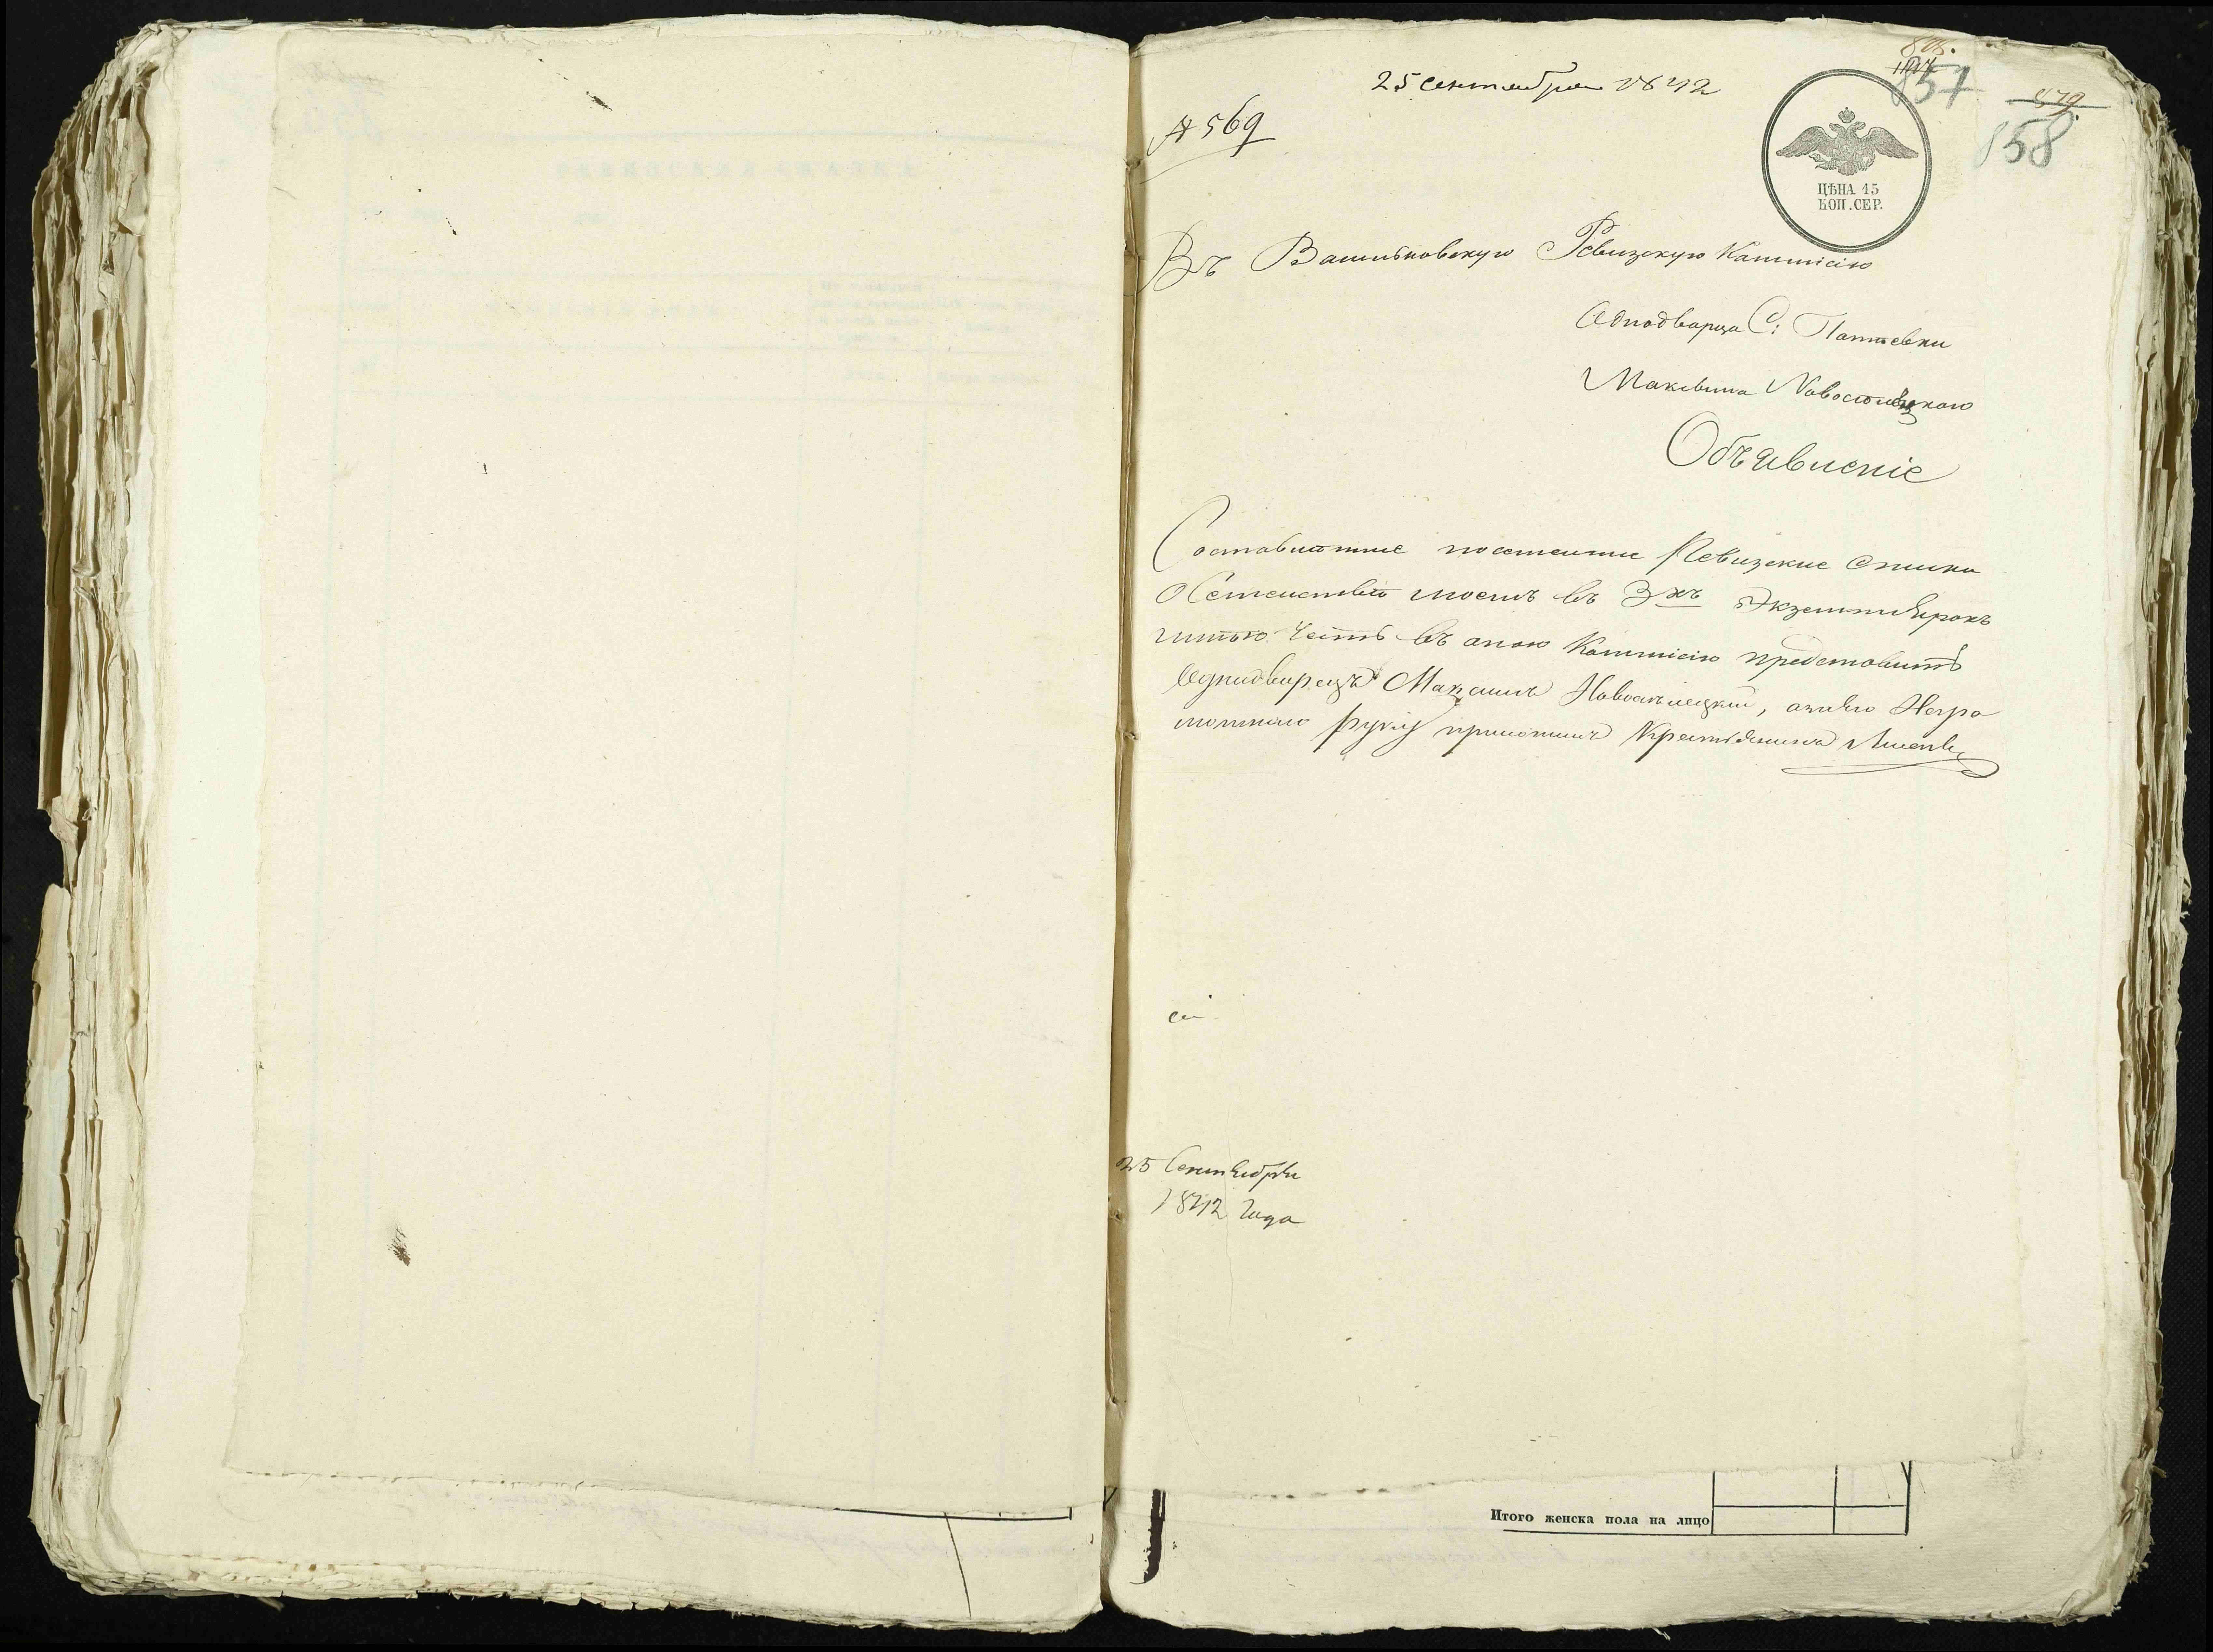 25 Сентября 1842
№ 569
857
579
858
ЦѢНА 15
КОП. СЕР.
Въ Васильковскую Ревизскую Коммисію
Однодворца С: Паліевки
Максима Новоселецкаго
Объявленіе
Составленные Ревизские Списки
О Семействѣ моемъ въ 3хъ Экземплярахъ
имѣю честь въ оною Коммисію представить
Однодворецъ Максимъ Новоселецкий, а за его Негра
мотного руку приложилъ Крестьянинъ
25 Сентября
1842 Года
Итого женска пола на лицо